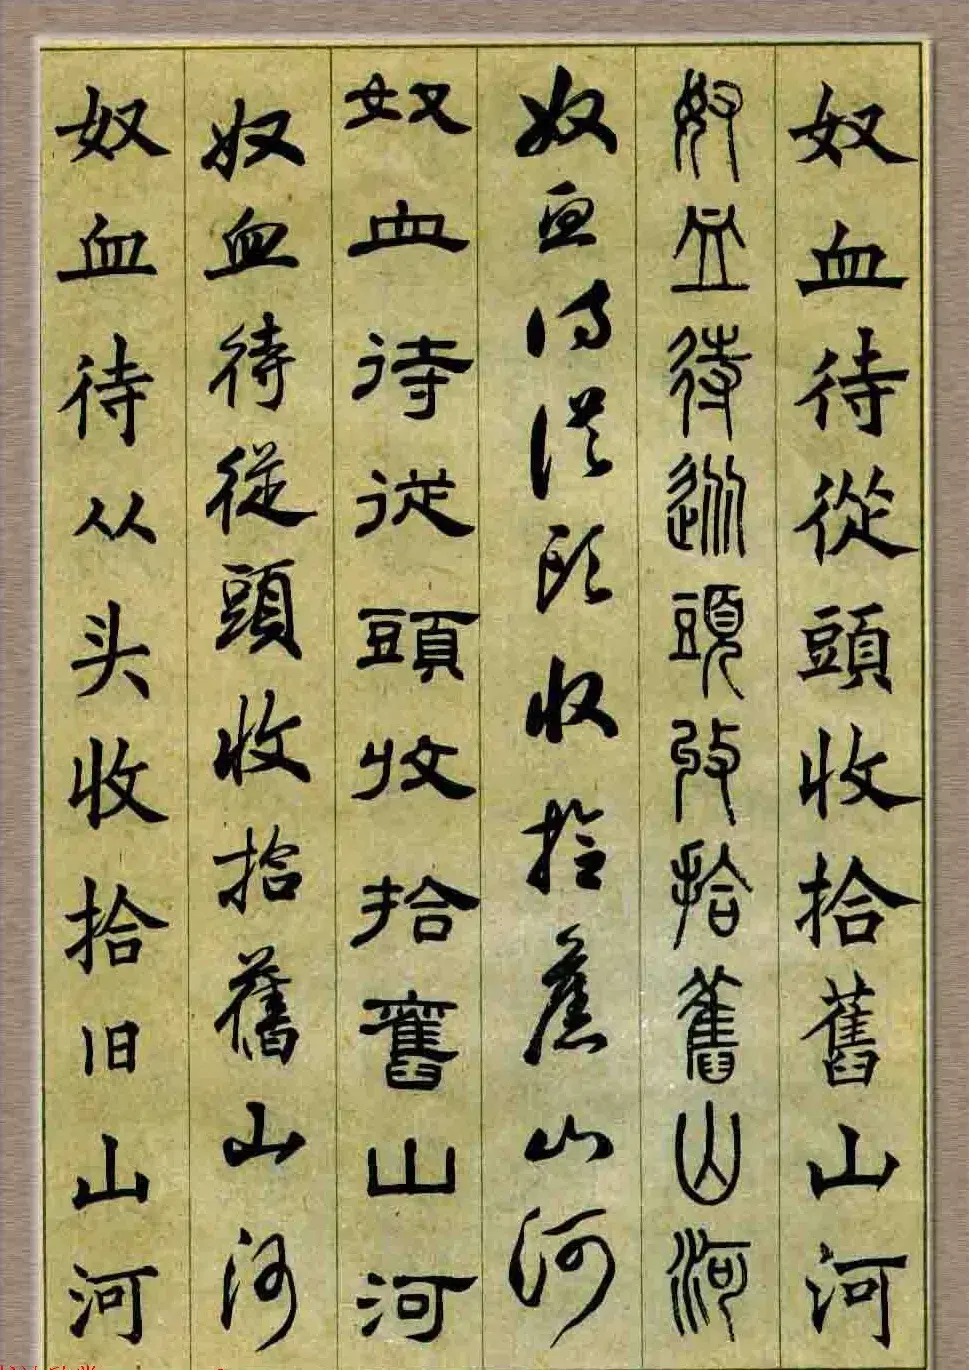 奴血待從頭收拾舊山河
奴血待從頭收拾舊山河
奴血待從頭收拾舊山河
奴血待從頭收拾舊山河
奴血待從頭收拾舊山河
奴血待从头收拾旧山河